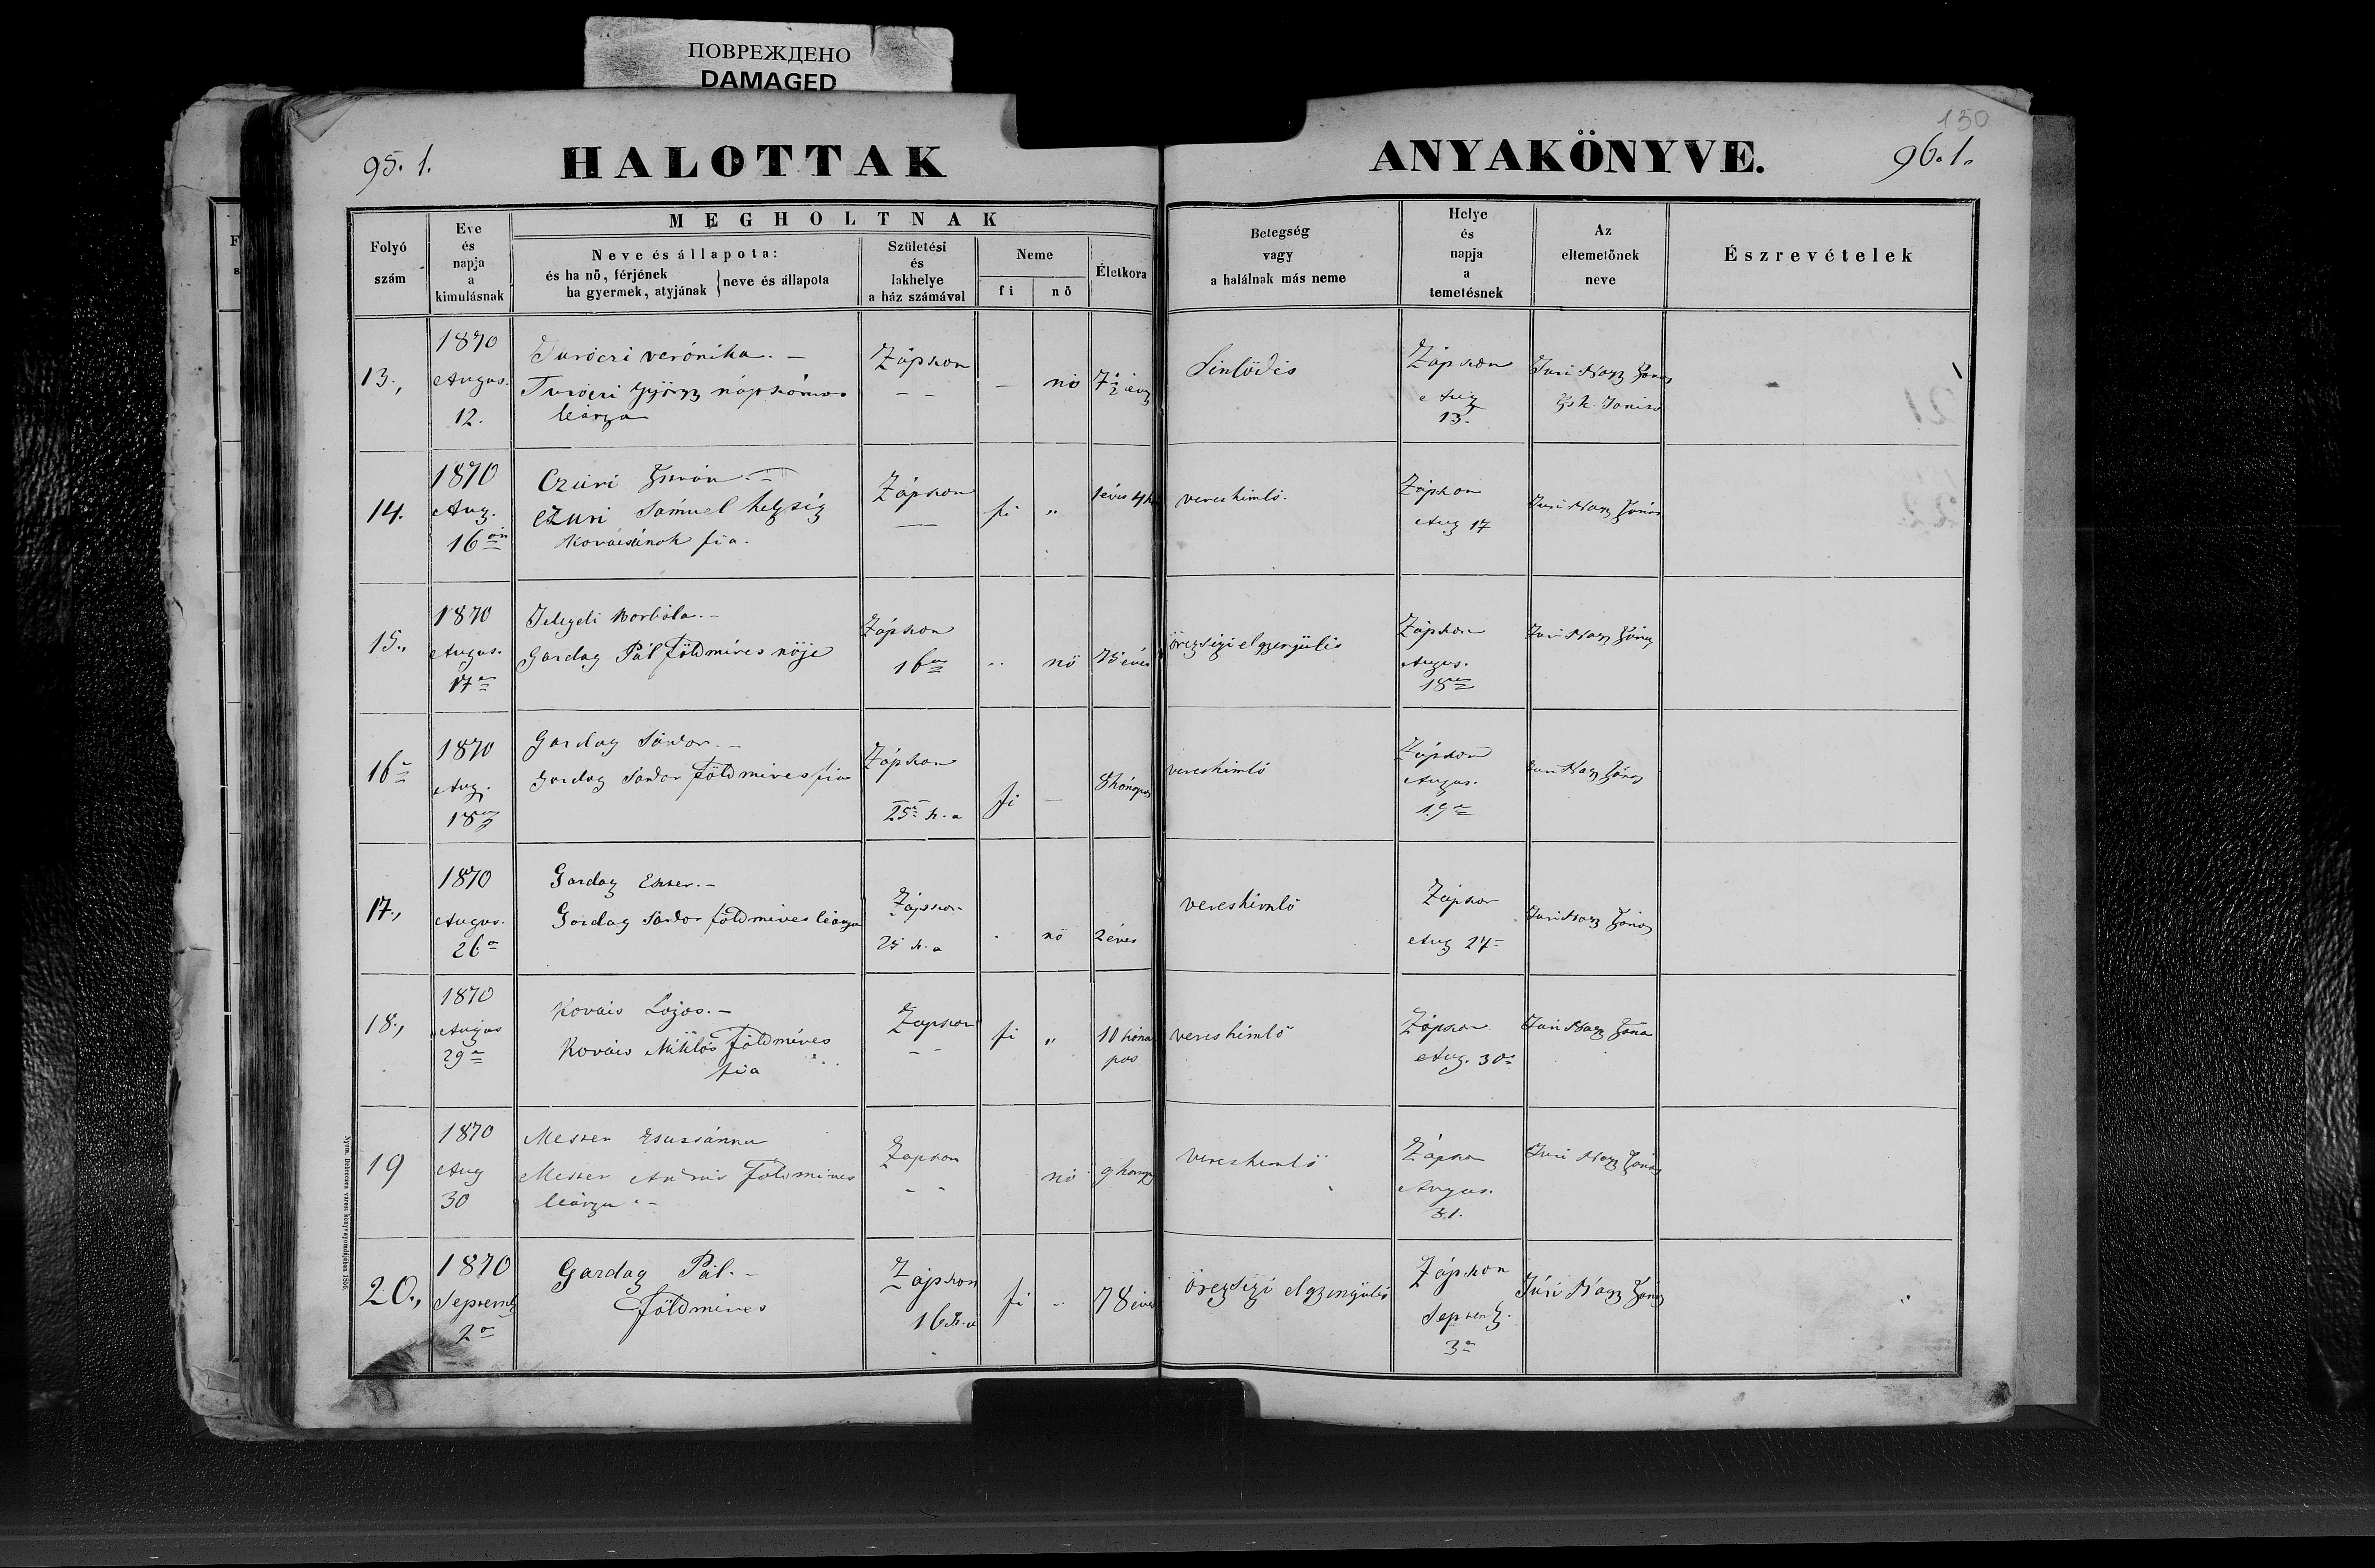 ПОВРЕЖДЕНО
DAMAGED
130
95. l.
HALOTTAK
ANYAKÖNYVE.
96. l.
MEGHOLTNAK
Folyó
szám
Eve
és
napja
a
kimulásnak
Neve és állapota:
és ha nő, férjének
ha gyermek, atyjának
neve és állapota
Születési
és
lakhelye
a ház számával
Neme
fi
nő
Életkora
Betegség
vagy
a halálnak más neme
Helye
és
napja
a
temetésnek
Az
eltemetőnek
neve
Észrevételek
13.,
1870
Augus.
12.
Turóczi verónika. –
Turóczi György
leánya
Zápszon
nő
7 1/2 éves
Sinlődés
Zápszon
Aug
13.
Túri Nagy János
14.
1870
Aug.
16án
Czúri
Czuri Sámuel helység
Kovácsának fia.
Zápszon
fi
"
1 éves 4
veres himlő.
Zápszon
Aug 17
Túri Nagy János
15.,
1870
Augus.
17n
Borbála. –
Gardag Pál földmíves nője
Zápszon
16
nő
75 éves
öregségi elgyengülés
Zápszon
Augus.
18
Túri Nagy János
16
1870
Aug.
18
Gardag Sándor. –
Gardag Sándor földmíves fia
Zápszon
25 h. a
fi
8 hónapos
veres himlő
Zápszon
Augus.
19n
Túri Nagy János
17.,
1870
Augus.
26n
Gardag Eszter. –
Gardag Sándor földmíves leánya
Zápszon
25 h. a
nő
2 éves
veres himlő
Zápszon
Aug 27
Túri Nagy János
18.,
1870
Augus
29n
Kovács Lajos. –
Kovács Miklós földmíves
fia
Zápszon
fi
"
10 hóna
pos
veres himlő
Zápszon
Aug. 30
Túri Nagy János
19
1870
Aug
30
Mester Zsuzsánna
Mester András földmíves
leánya –
Zápszon
nő
9 hónap
veres himlő
Zápszon
Augus.
31.
Túri Nagy János
20.,
1870
Septemb
2n
Gardag Pál. –
földmíves
Zápszon
16 h. a
fi
78 éves
öregségi elgyengülés
Zápszon
Septemb.
3n
Túri Nagy János
Nyom. Debreczen város könyvnyomdájában 1856.